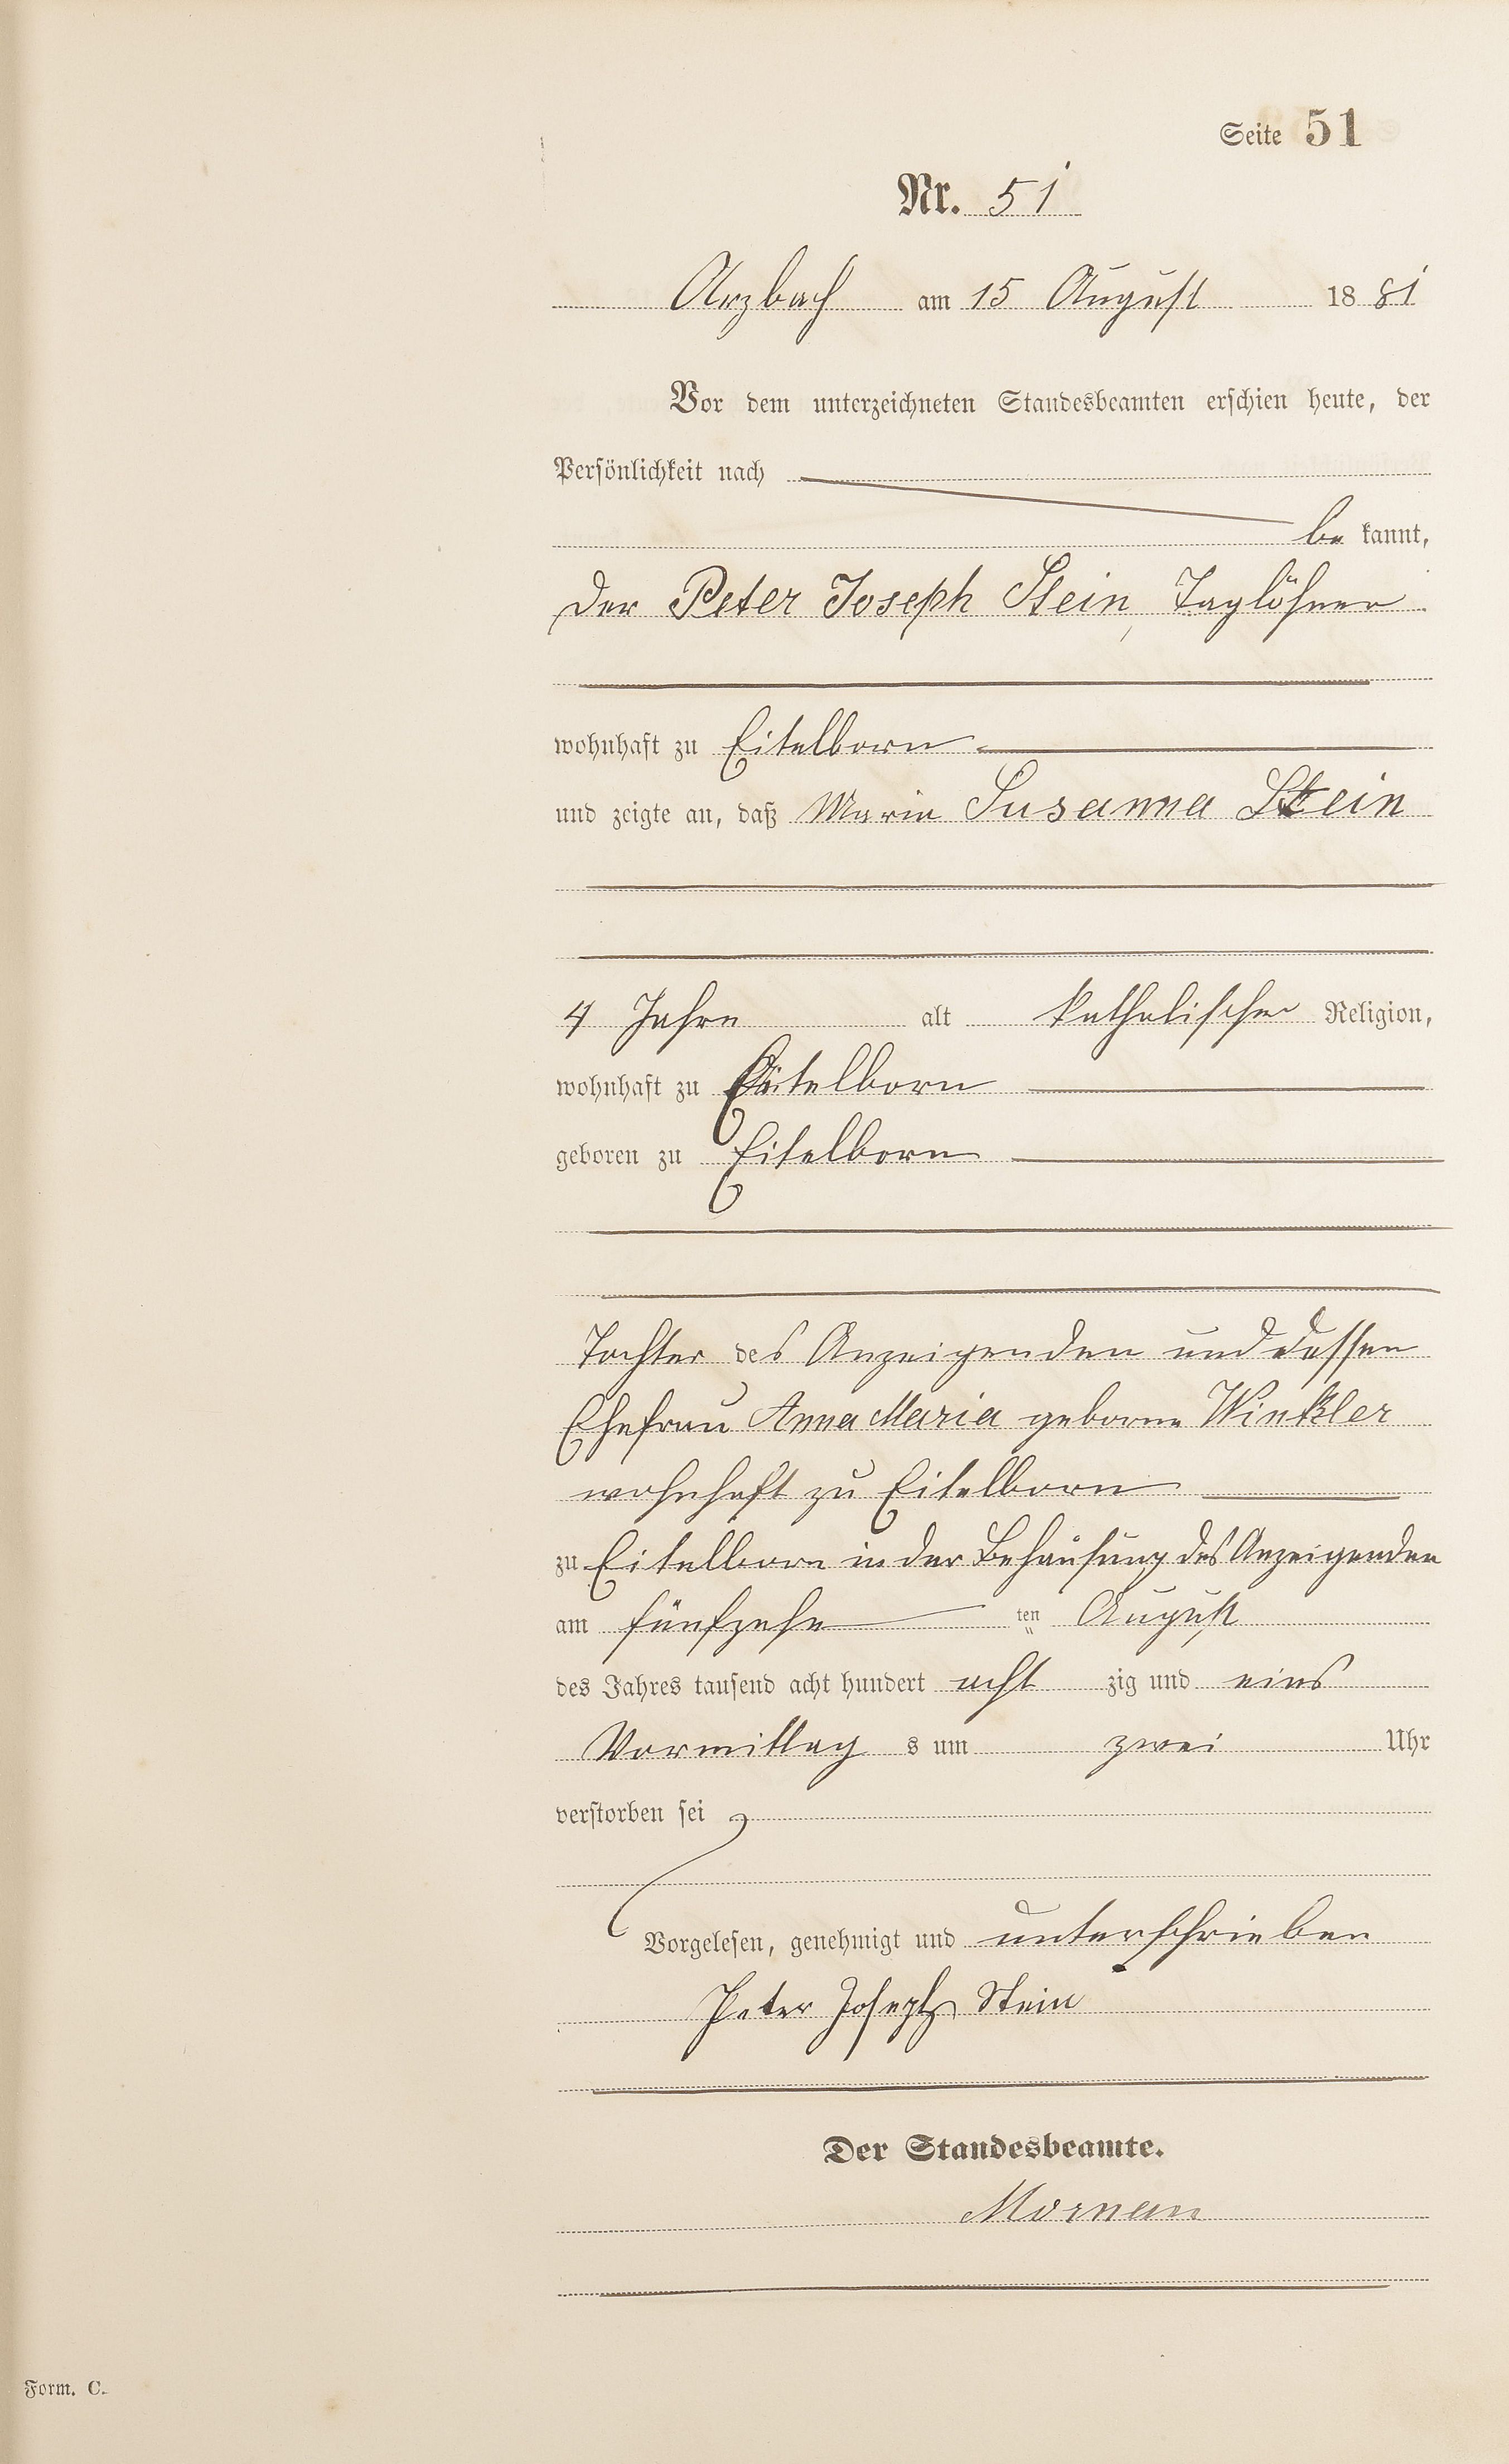 Seite 51
Nr. 51
Arzbach am 15 August 1881
Vor dem unterzeichneten Standesbeamten erschien heute, der
Persönlichkeit nach
be kannt,
der Peter Joseph Stein, Taglöhner
wohnhaft zu Eitelborn
und zeigte an, daß Maria Susanna Stein
4 Jahre alt katholischer Religion,
wohnhaft zu Eitelborn
geboren zu Eitelborn
Tochter des Anzeigenden und dessen
Ehefrau Anna Maria geborne Winkler
wohnhaft zu Eitelborn
zu Eitelborn in der Behausung des Anzeigenden
am fünfzehn ten August
des Jahres tausend acht hundert acht zig und eins
Vormittag s um zwei Uhr
verstorben sei
Vorgelesen, genehmigt und unterschrieben
Peter Joseph Stein
Der Standesbeamte.
Form. C.